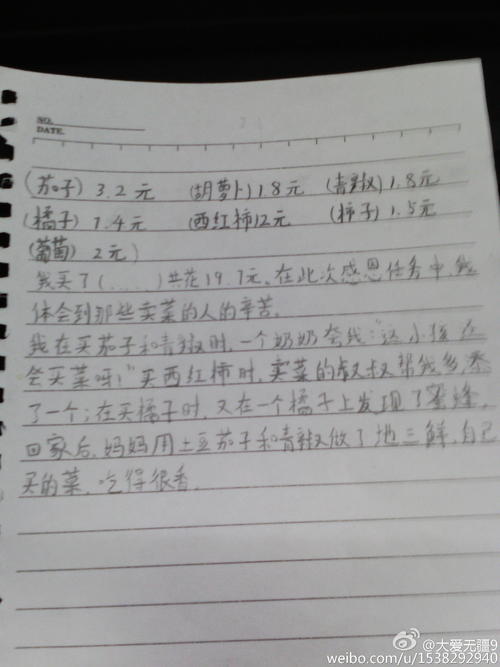 NO.
DATE.
(茄子) 3.2元 (胡萝卜) 1.8元 (青椒) 1.8元
(橘子) 7.4元 (西红柿) 2元 (柿子) 1.5元
(葡萄) 2元)
我买了(.....)共花19.7元。在此次感恩任务中,我
体会到那些卖菜的人的辛苦。
我在买茄子和青椒时,一个奶奶夸我:“这小孩还
会买菜呀!”买西红柿时,卖菜的叔叔帮我多
了一个;在买橘子时,又在一个橘子上发现了蜜蜂,
回家后,妈妈用土豆茄子和青椒做了地三鲜,自己
买的菜,吃得很香。
@大爱无疆9
weibo.com/u/1538292940